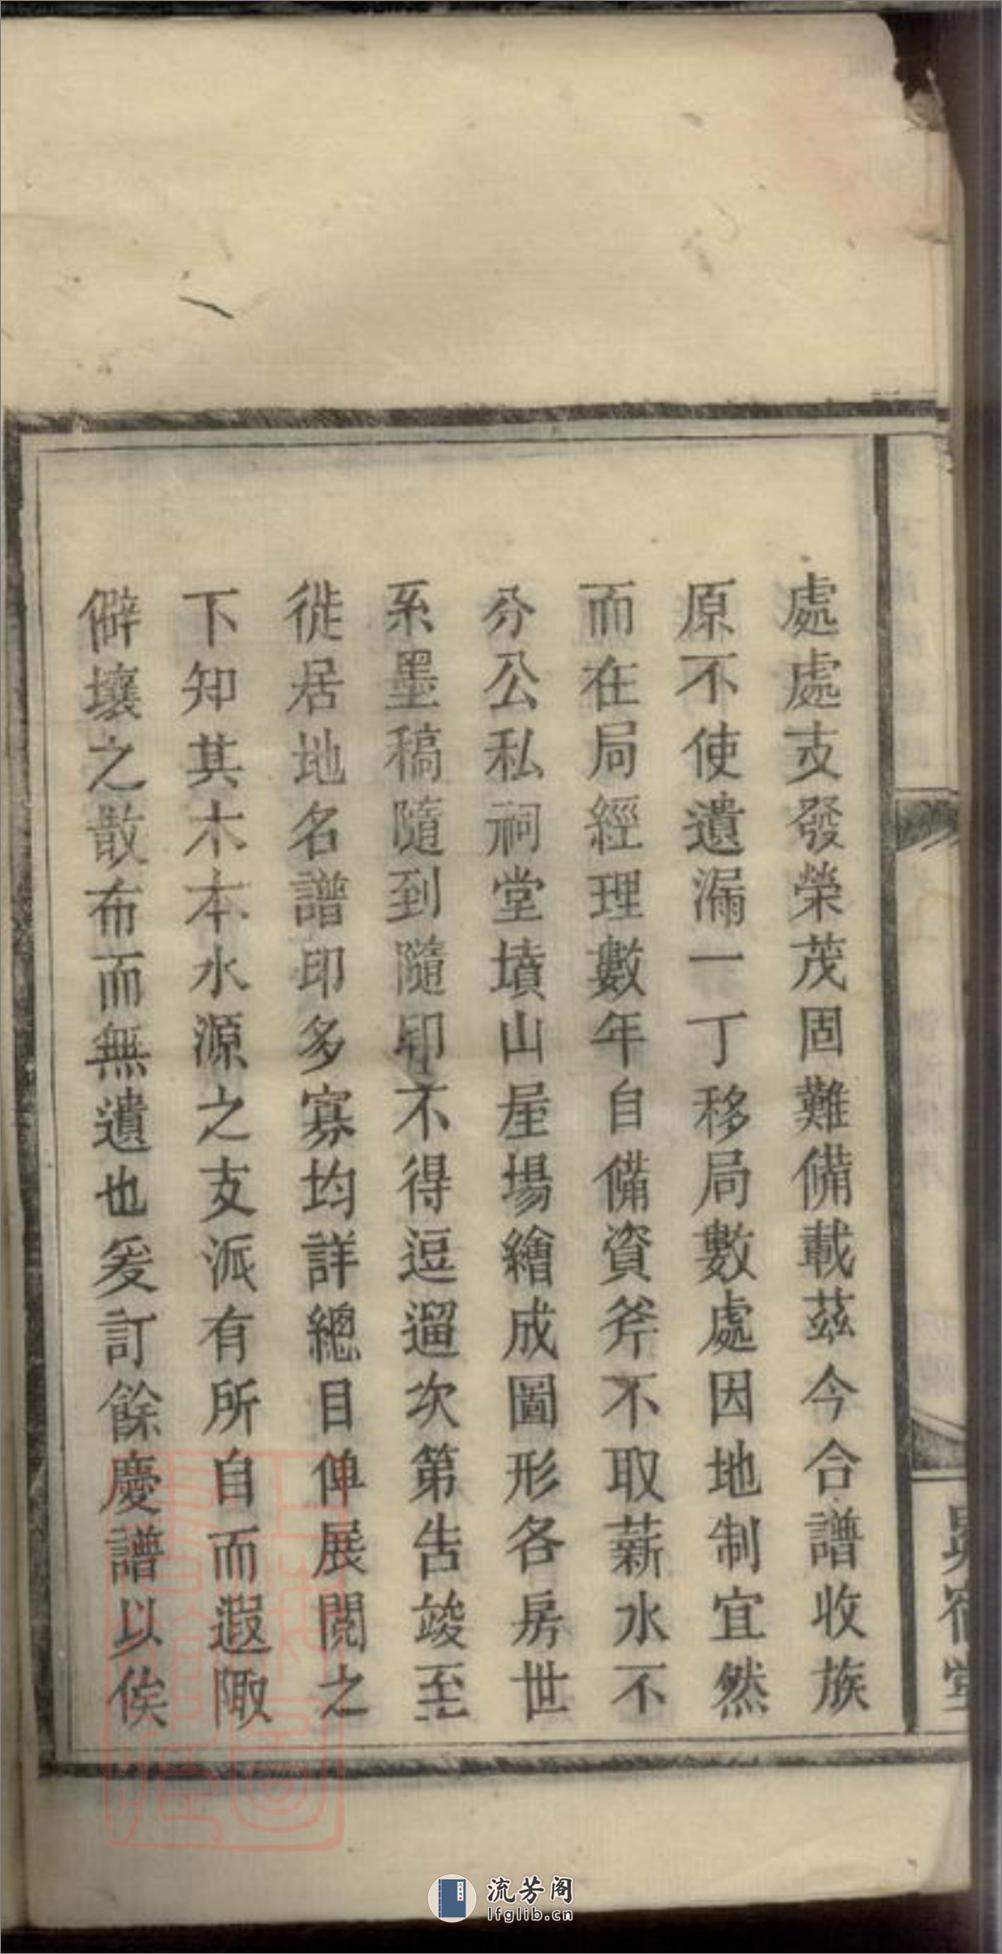 處處支發榮茂固難備載茲今合譜收族
原不使遺漏一丁移局數處因地制宜然
而在局經理數年自備資斧不取薪水不
分公私祠堂墳山屋場繪成圖形各房世
系墨稿隨到隨印不得逗遛次第告竣至
徙居地名譜印多寡均詳總目俾展閱之
下知其木本水源之支派有所自而遐陬
僻壤之散布而無遺也爰訂餘慶譜以俟
流芳阁
lfglib.cn